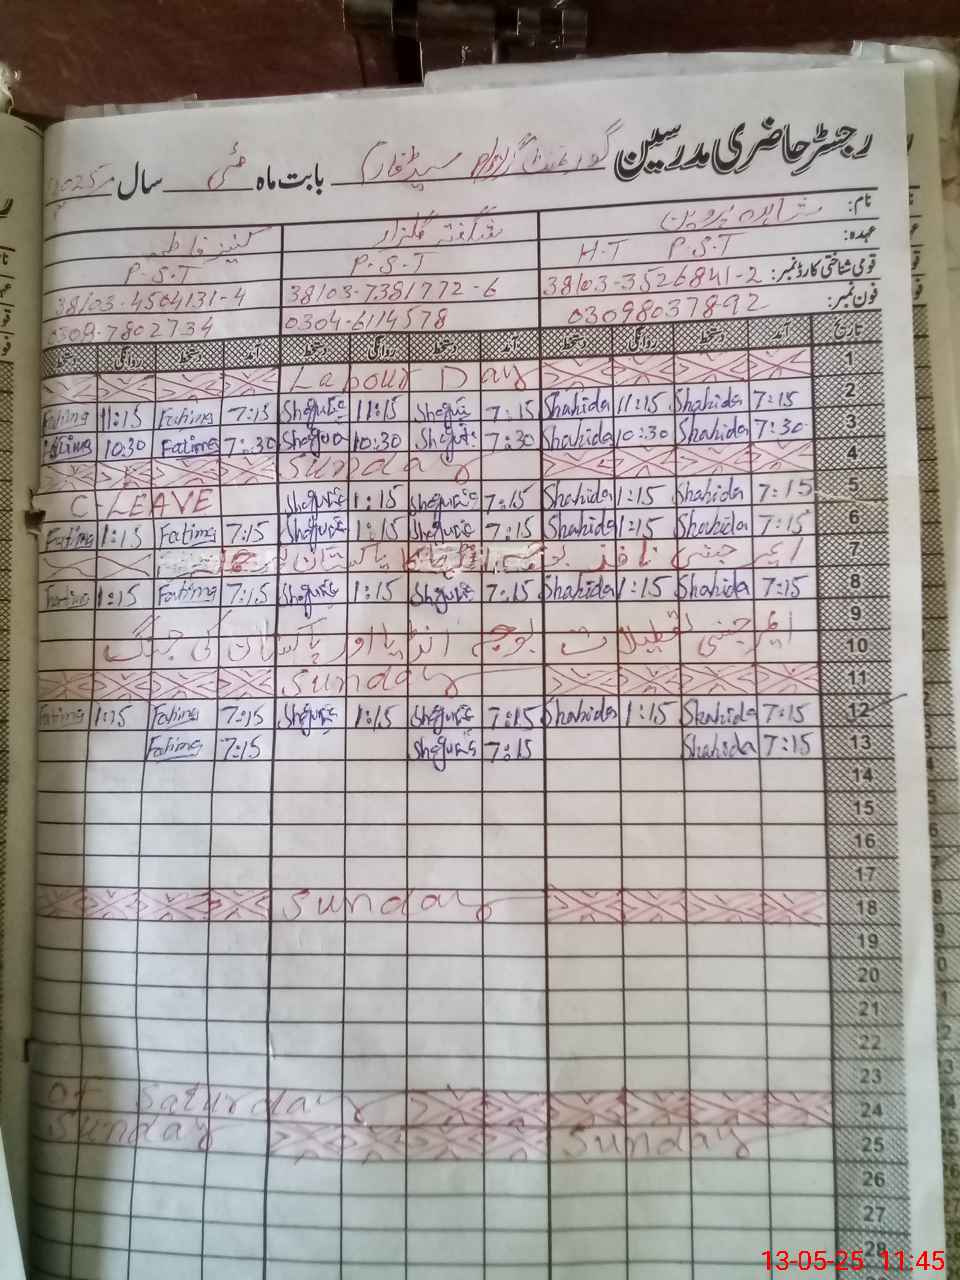 رجسٹر حاضری مدرسین
بابت ماہ مئی سال 2025
نام: شاہدہ پروین شگفتہ گلزار کنیز فاطمہ
عہدہ: H-T P.S.T P.S.T P.S.T
قومی شناختی کارڈ نمبر: 38103-3526841-2 38103-7381772-6 38103-4504131-4
فون نمبر: 03098037892 0304-6114578 0309-7802734
تاریخ آمد دستخط روانگی دستخط آمد دستخط روانگی دستخط آمد دستخط روانگی دستخط
1 Labour Day
2 7:15 Shahida 11:15 Shahida 7:15 11:15 7:15 Fatima 11:15 Fatima
3 7:30 Shahida 10:30 Shahida 7:30 10:30 7:30 Fatima 10:30 Fatima
4 Sunday
5 7:15 Shahida 1:15 Shahida 7:15 1:15 C-LEAVE
6 7:15 Shahida 1:15 Shahida 7:15 1:15 7:15 Fatima 1:15 Fatima
7 ایمرجنسی نافذ پاکستان
8 7:15 Shahida 1:15 Shahida 7:15 1:15 7:15 Fatima 1:15 Fatima
9
10 ایمرجنسی تعطیلات بوجہ انڈیا اور پاکستان کی جنگ
11 Sunday
12 7:15 Shahida 1:15 Shahida 7:15 1:15 7:15 Fatima 1:15 Fatima
13 7:15 Shahida 7:15 7:15 Fatima
14
15
16
17
18 Sunday
19
20
21
22
23
24 of Saturday
25 Sunday Sunday
26
27
28
13-05-25 11:45